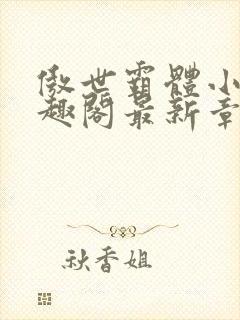 傲世霸體小
趣閣最新章
秋香姐